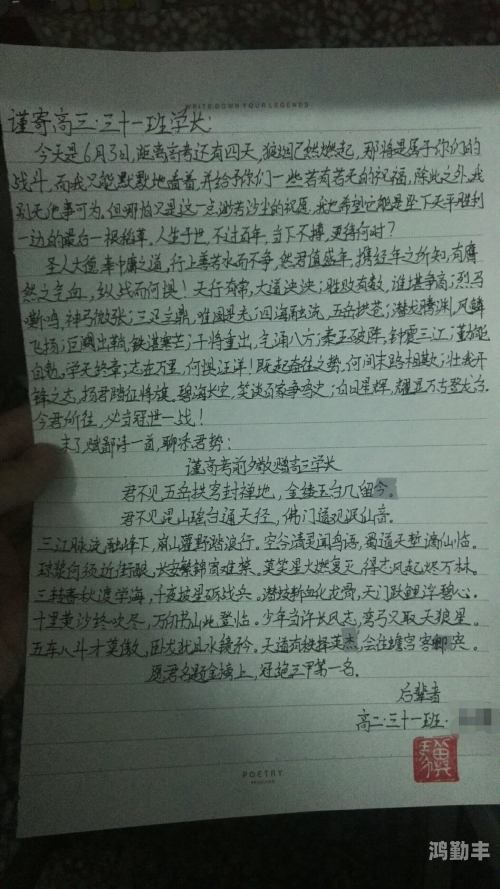 WRITE DOWN YOUR LEGENDS
谨寄高三·三十一班学长:
今天是6月3日,距离高考还有四天,狼烟已然燃起,那将是属于你们的
战斗,而我只能默默地看着,并给予你们一些若有若无的祝福,除此之外,我
别无他事可为,但哪怕只是这一点渺若沙尘的祝愿,我也希望它能是坠下天平胜利
一边的最后一根稻草。人生于世,不过百年,当下不搏,更待何时?
圣人大德,奉中庸之道,行上善若水而不争,然君值盛年,携经年之所知,有鹰
然之气血,纵战而何惧!天行有常,大道泱泱;胜败有数,谁堪争高;烈马
嘶鸣,神弓微张;三叉立鼎,唯国是先;四海融流,五岳拱苍;潜龙腾渊,风麟
飞扬;巨阙出鞘,铁湛寒芒;干将重出,气涌八方;秦王破阵,钟震三江;
志在万里,何惧汪洋!既起奋往之势,何问末路相欺;壮我开
锋之志,扬君踏征旌旗。碧海长空,笑谈百家争鸣史;白日星辉,耀显万古
今君所往,必当冠世一战!
末了,赋鄙诗一首,聊添君势:
谨高考前夕敬赠高三学长
君不见五岳拱穹封禅地,金缕玉台几留今。
君不见昆山瑶台通天径,佛门遗观泯仙音。
三江脉流融峰下,麻山藿野踏浪行。空谷清灵闻鸟语,蜀道天堑谪仙临。
琼浆何须近街眠,长安繁锦宫难禁。莫笑星火燃复灭,得志风起烬万林。
三秋渡学海,十夜披星砺战兵。潜技斩血化龙骨,天门跃鲤泮碧心。
十里黄沙终吹尽,万仞书山此登临。少年当许长风志,弯弓又取天狼星。
五车八斗才莫傲,卧龙就且水镜吟。天道有秩择英杰,会往蟾宫客卿突。
愿君名题金榜上,冠绝三甲第一名。
后辈者
高二·三十一班·
POETRY
鸿勤丰